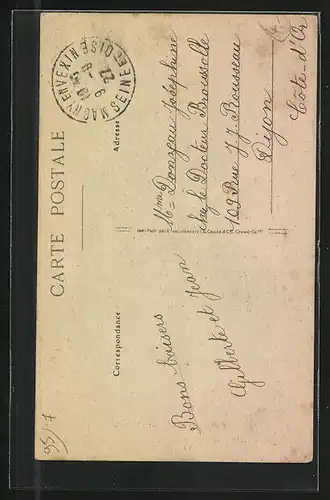 CARTE POSTALE
MAGNY EN VEXIN SEINE ET OISE
22
Correspondance
Adresse
Bons baisers
Gilberte et Jean
Mme Donzeau Joséphine
chez le Docteur Broussolle
109 Rue J. J. Rousseau
Dijon
Côte-d'Or
95/7